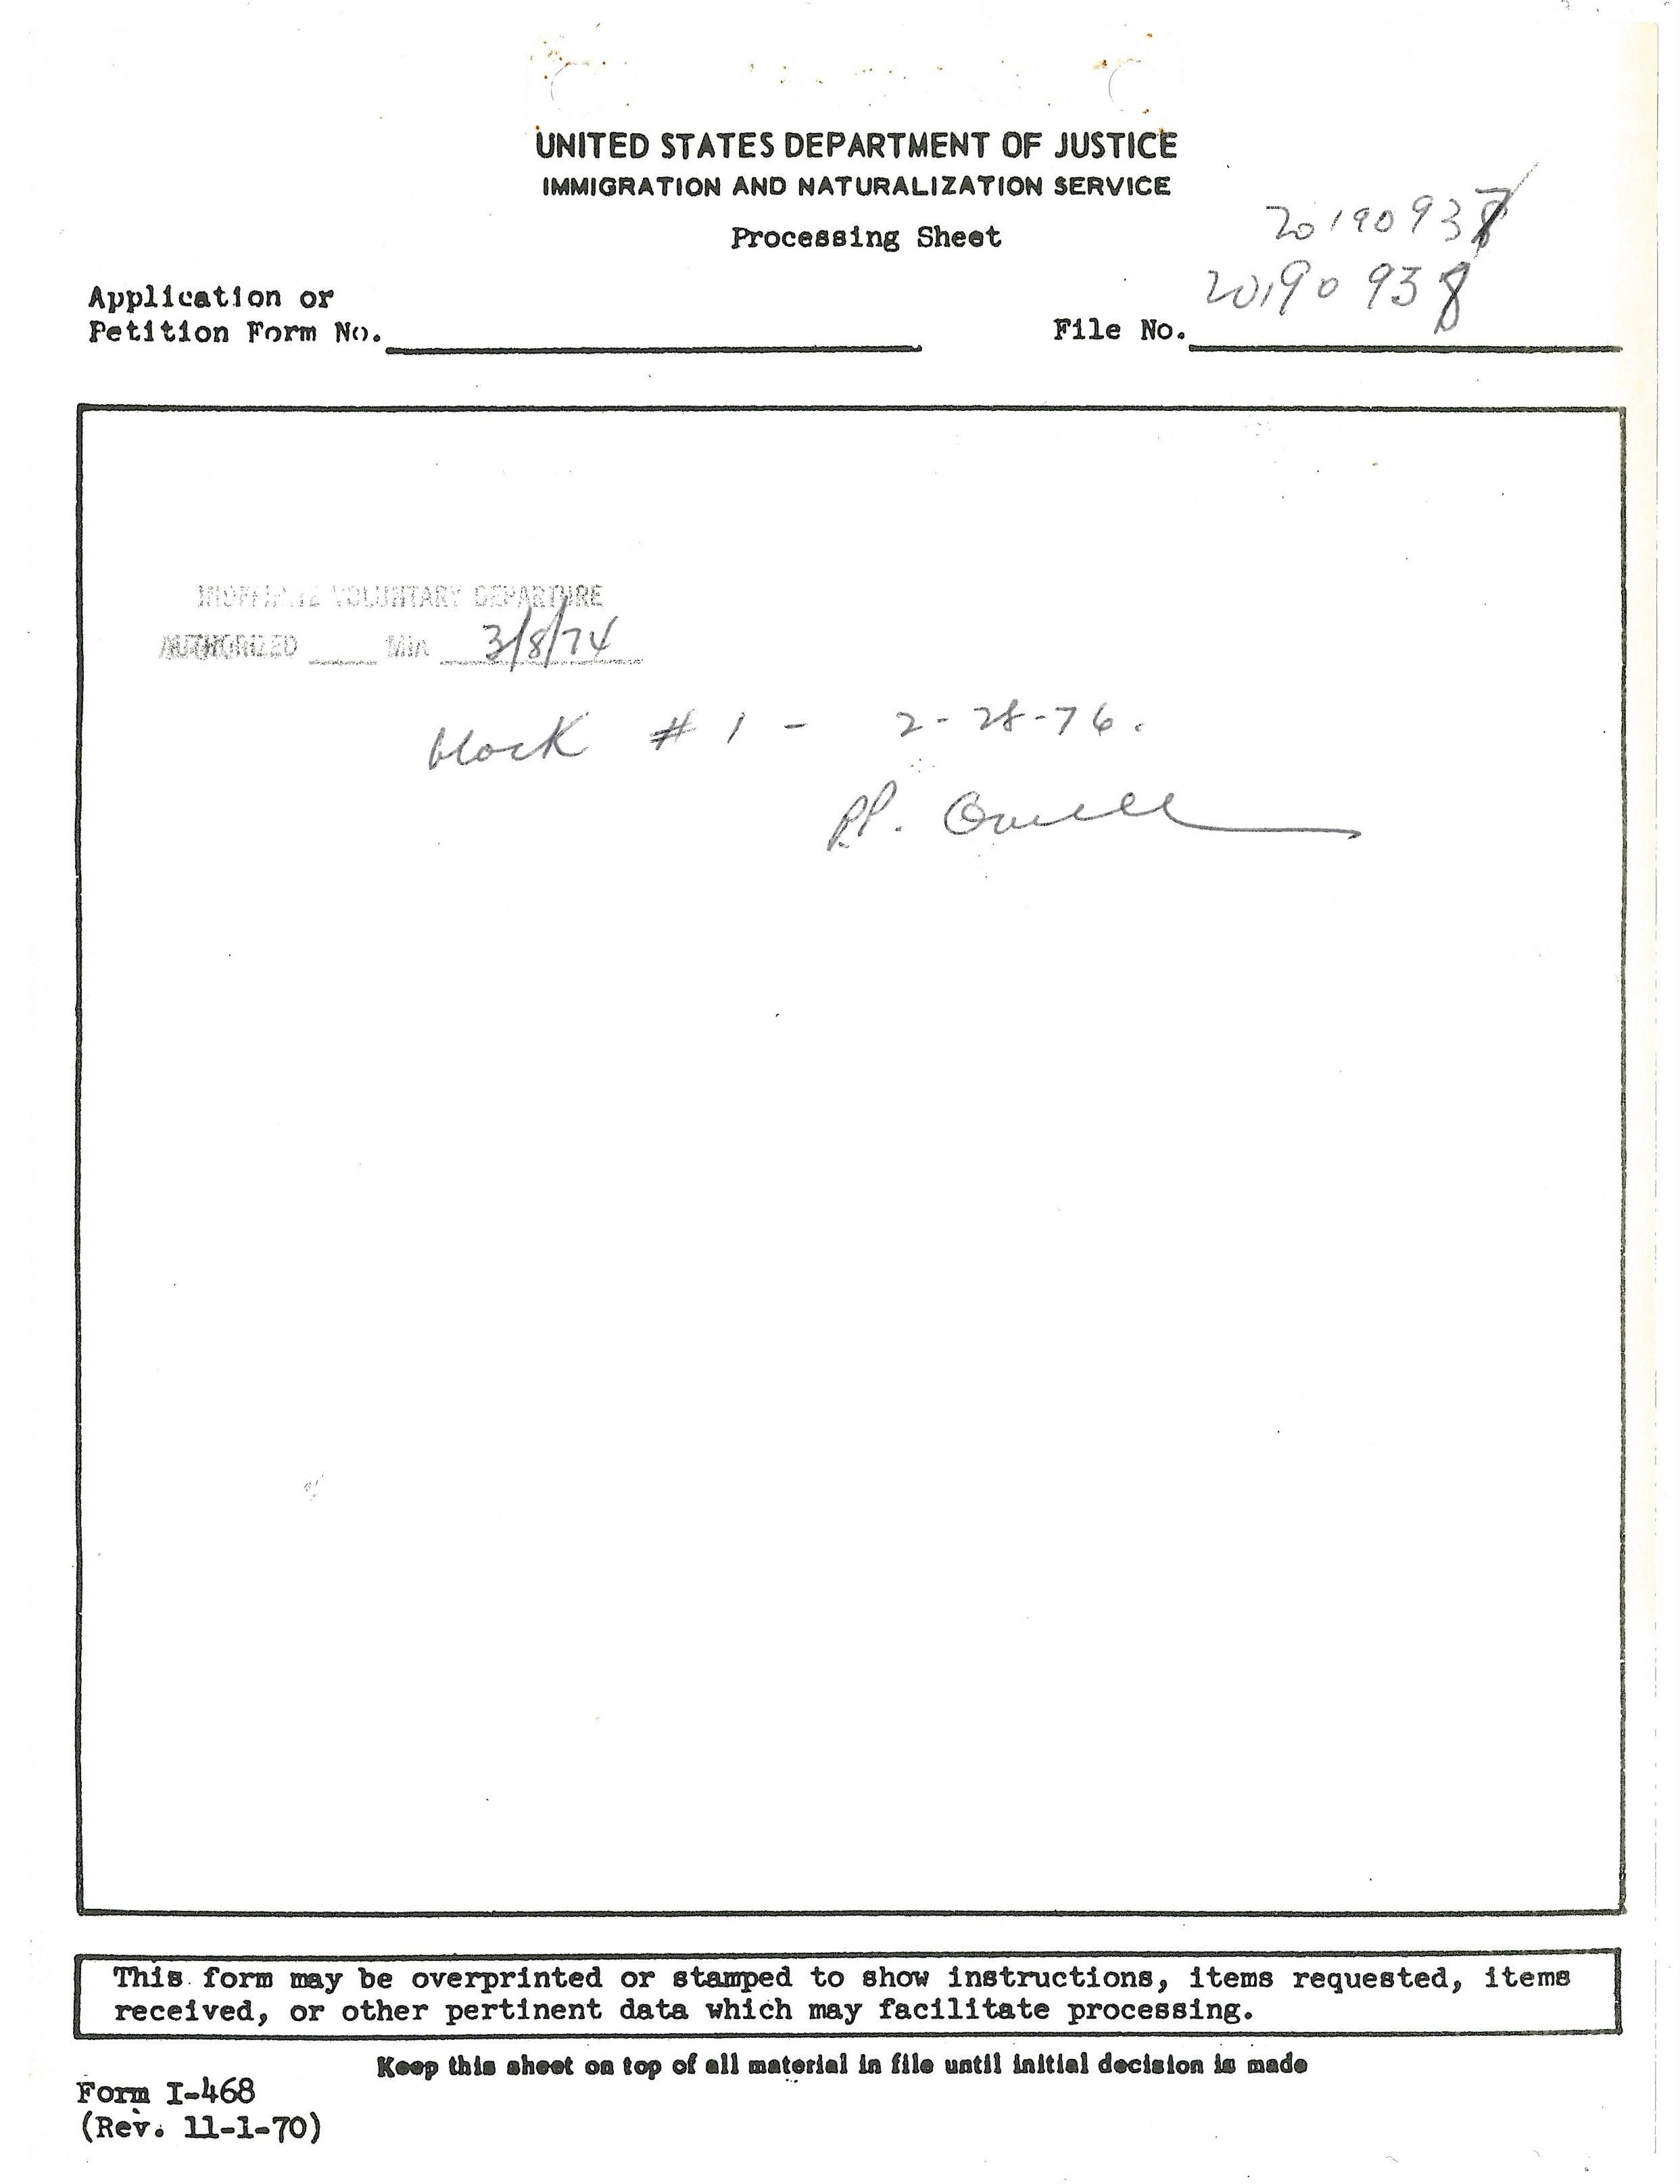 UNITED STATES DEPARTMENT OF JUSTICE
IMMIGRATION AND NATURALIZATION SERVICE
Processing Sheet
2019093
20190 938
Application or
Petition Form No.
File No.
VOLUNTARY DEPARTURE
AUTHORIZED MIA 3/8/74
block # 1 - 2-28-76.
P.P.
This form may be overprinted or stamped to show instructions, items requested, items
received, or other pertinent data which may facilitate processing.
Keep this sheet on top of all material in file until initial decision is made
Form I-468
(Rev. 11-1-70)